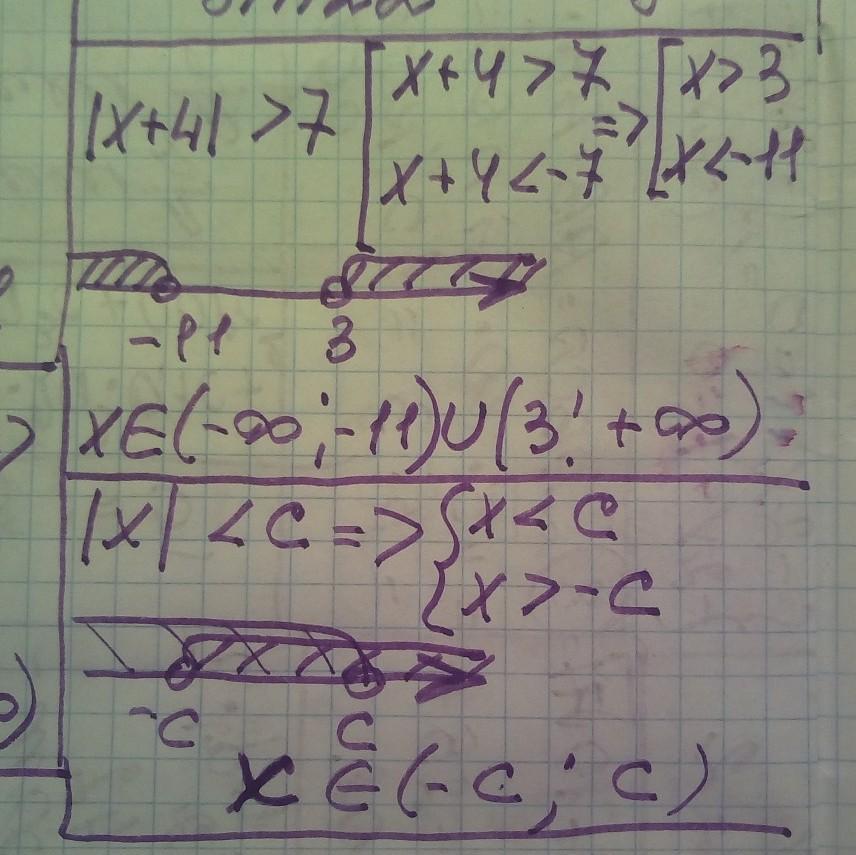 |x+4| >7 [ x+4>7 => [ x>3
x+4<-7 x<-11
-11 3
x∈(-∞;-11)∪(3; +∞)
|x| <c => { x<c
x>-c
-c c
x∈(-c; c)